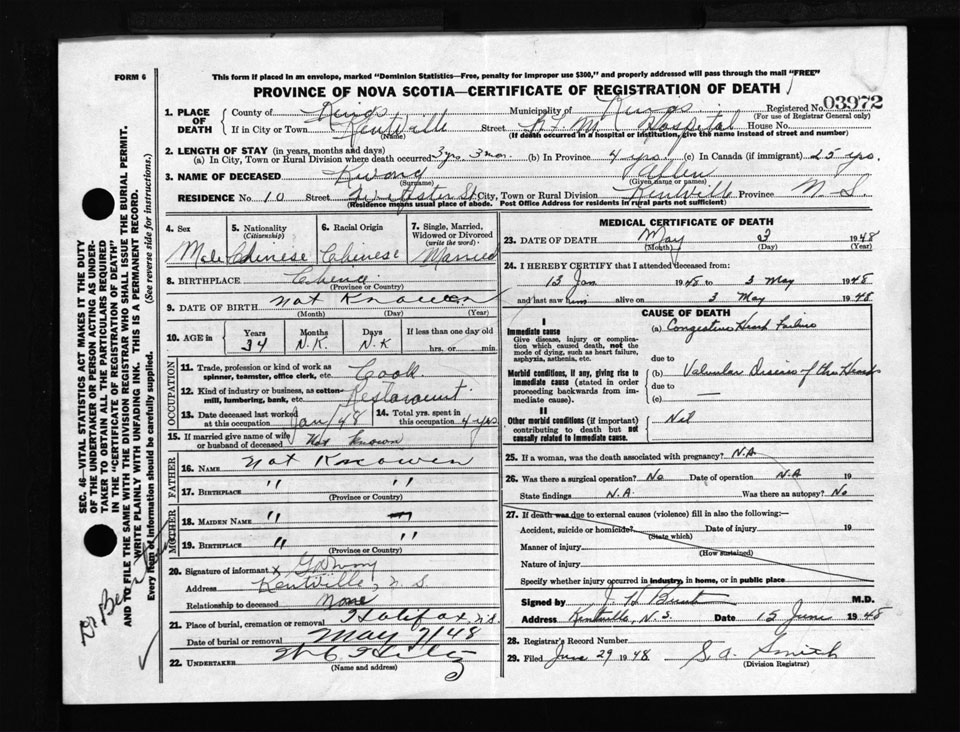 FORM 6
This form if placed in an envelope, marked "Dominion Statistics—Free, penalty for improper use $300," and properly addressed will pass through the mail "FREE"
PROVINCE OF NOVA SCOTIA—CERTIFICATE OF REGISTRATION OF DEATH
1. PLACE OF DEATH County of Kings Municipality of Kings Registered No. 03972
(For use of Registrar General only)
If in City or Town Kentville Street Hospital House No.
(Name) (If death occurred in a hospital or institution, give the name instead of street and number)
2. LENGTH OF STAY (in years, months and days)
(a) In City, Town or Rural Division where death occurred 3 yrs. 3 mos. (b) In Province 4 yrs. (c) In Canada (if immigrant) 25 yrs.
3. NAME OF DECEASED Kwong Allen
(Surname) (Given name or names)
RESIDENCE No. 10 Street Webster St City, Town or Rural Division Kentville Province N.S
(Residence means usual place of abode. Post Office Address for residents in rural parts not sufficient)
4. Sex Male
5. Nationality (Citizenship) Chinese
6. Racial Origin Chinese
7. Single, Married, Widowed or Divorced (write the word) Married
8. BIRTHPLACE China
(Province or Country)
9. DATE OF BIRTH Not Known
(Month) (Day) (Year)
10. AGE in Years 34 Months N.K. Days N.K If less than one day old hrs. or min.
OCCUPATION
11. Trade, profession or kind of work as spinner, teamster, office clerk, etc. Cook
12. Kind of industry or business, as cotton-mill, lumbering, bank, etc. Restaraunt
13. Date deceased last worked at this occupation Jany/48
14. Total yrs. spent in this occupation 4 yrs
15. If married give name of wife or husband of deceased Not Known
FATHER
16. NAME Not Known
17. BIRTHPLACE " "
(Province or Country)
MOTHER
18. MAIDEN NAME " "
19. BIRTHPLACE " "
(Province or Country)
20. Signature of informant x
Address Kentville, N.S
Relationship to deceased None
21. Place of burial, cremation or removal Halifax, N.S.
Date of burial or removal May 7/48
22. UNDERTAKER
(Name and address)
MEDICAL CERTIFICATE OF DEATH
23. DATE OF DEATH May 3 1948
(Month) (Day) (Year)
24. I HEREBY CERTIFY that I attended deceased from:
13 Jan 1948 to 3 May 1948
and last saw him alive on 3 May 1948
CAUSE OF DEATH
I
Immediate cause
Give disease, injury or complication which caused death, not the mode of dying, such as heart failure, asphyxia, asthenia, etc.
(a) Congestive Heart Failure
due to
Morbid conditions, if any, giving rise to immediate cause (stated in order proceeding backwards from immediate cause).
(b) Valvular Disease of the Heart
due to
(c) —
II
Other morbid conditions (if important) contributing to death but not causally related to immediate cause.
Nil
25. If a woman, was the death associated with pregnancy? N.A.
26. Was there a surgical operation? No Date of operation N.A. 19
State findings N.A. Was there an autopsy? No
27. If death was due to external causes (violence) fill in also the following:—
Accident, suicide or homicide? Date of injury 19
(State which)
Manner of injury
(How sustained)
Nature of injury
Specify whether injury occurred in industry, in home, or in public place
Signed by M.D.
Address Kentville, N.S. Date 15 June 1948
28. Registrar's Record Number
29. Filed June 29 1948 S.A. Smith
(Division Registrar)
SEC. 46—VITAL STATISTICS ACT MAKES IT THE DUTY
OF THE UNDERTAKER OR PERSON ACTING AS UNDERTAKER
TO OBTAIN ALL THE PARTICULARS REQUIRED
IN THE "CERTIFICATE OF REGISTRATION OF DEATH"
AND TO FILE THE SAME WITH THE DIVISION REGISTRAR WHO SHALL ISSUE THE BURIAL PERMIT.
WRITE PLAINLY WITH UNFADING INK. THIS IS A PERMANENT RECORD.
Every item of information should be carefully supplied. (See reverse side for instructions.)